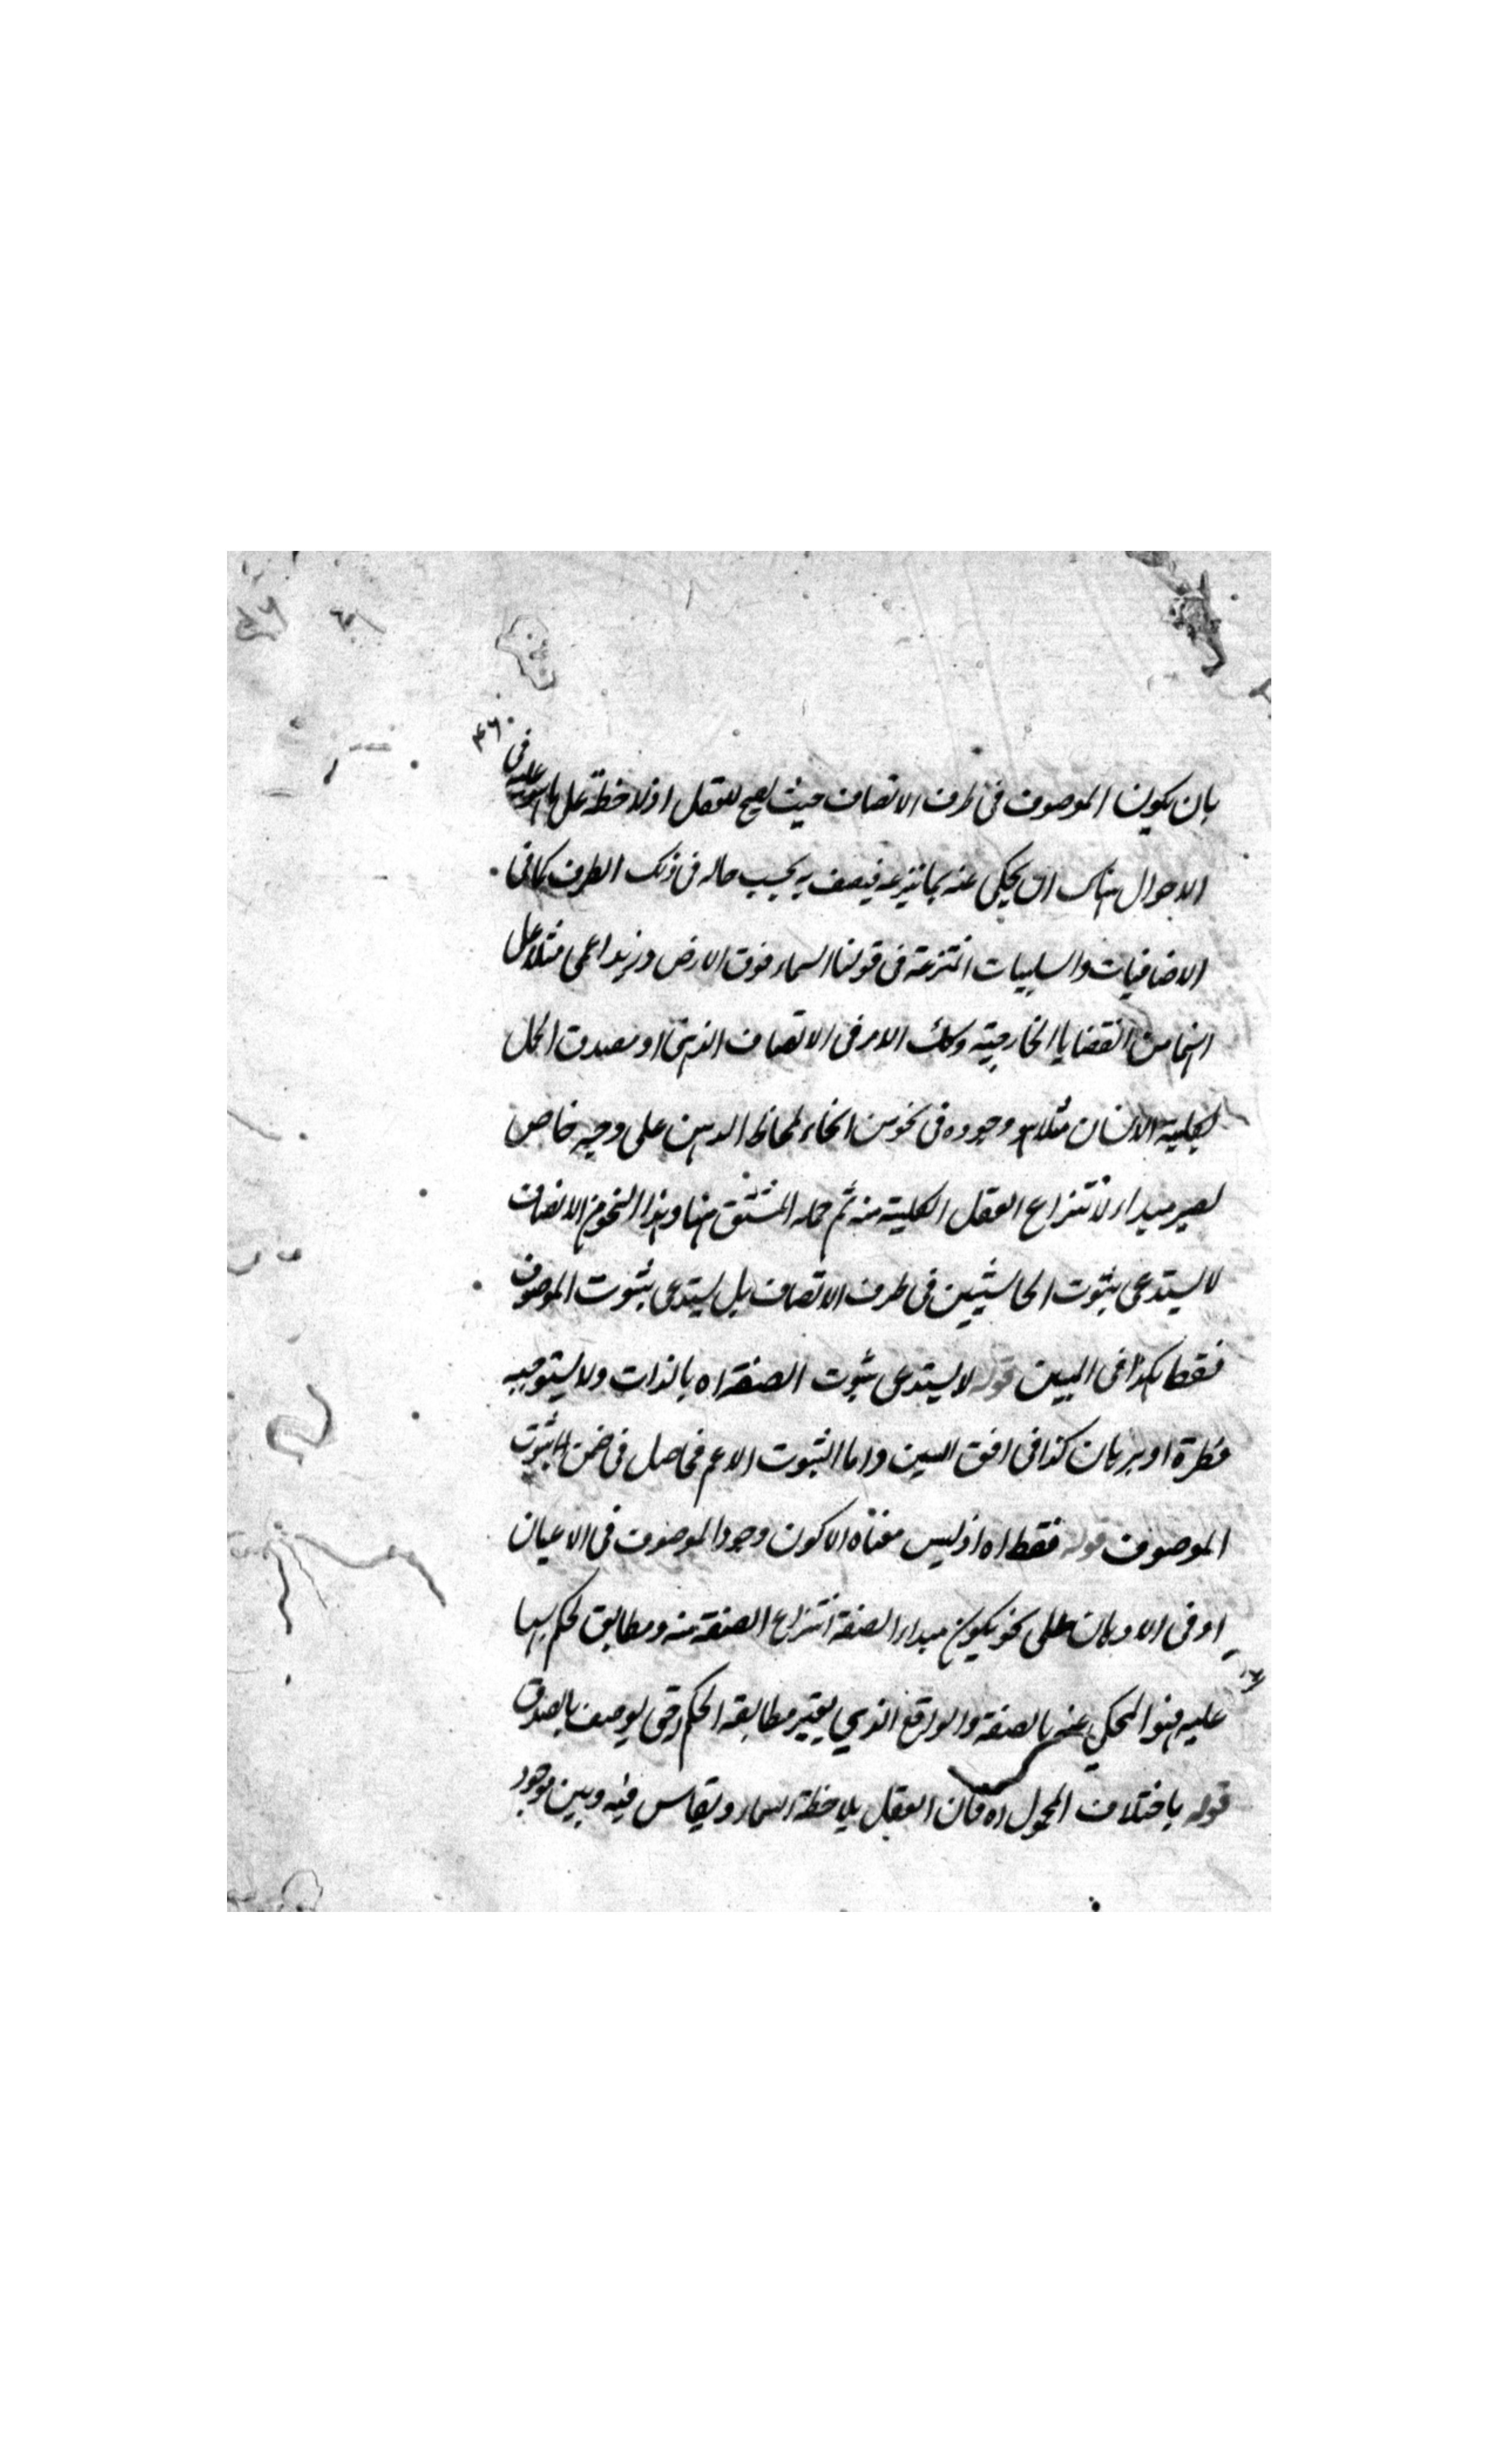 بان يكون الموصوف فى ظرف الاتصاف حيث يصح للعقل اذ لاحظه على ما هو عليه فى
الاحوال هناك ان يحكى عنه بما ينتزعه فيصف به بحسب حاله فى ذلك الظرف كما فى
الاضافيات والسلبيات المنتزعة فى قولنا السماء فوق الارض وزيد اعمى مثلا على
انهما من القضايا الخارجية وكك الامر فى الاتصاف الذهنى او مصدق الحمل
لكلية الانسان مثلا هو وجوده فى نحو من انحاء لحاظ الذهن على وجه خاص
يصير مبدأ لانتزاع العقل الكلية منه ثم حمله المشتق منها وهذا النحو من الاتصاف
لا يستدعى ثبوت الحاشيتين فى ظرف الاتصاف بل يستدعى ثبوت الموصوف
فقط هكذا فى المبين قوله لا يستدعى ثبوت الصفة اه بالذات ولا يستوجبه
فطرة او برهان كذا فى افق المبين واما الثبوت الاعم فحاصل فى ضمن ثبوت
الموصوف قوله فقط اه اذ ليس معناه الا كون وجود الموصوف فى الاعيان
او فى الاذهان على نحو يكون مبدأ الصفة انتزاع الصفة منه ومطابق لحكم بها
عليه فهو المحكى عنه بالصفة والواقع الذى يعتبر مطابقة الحكم حتى يوصف بالصدق
قوله باختلاف المحمول اه فان العقل بملاحظة السماء ويقاس فيه وبين موجود